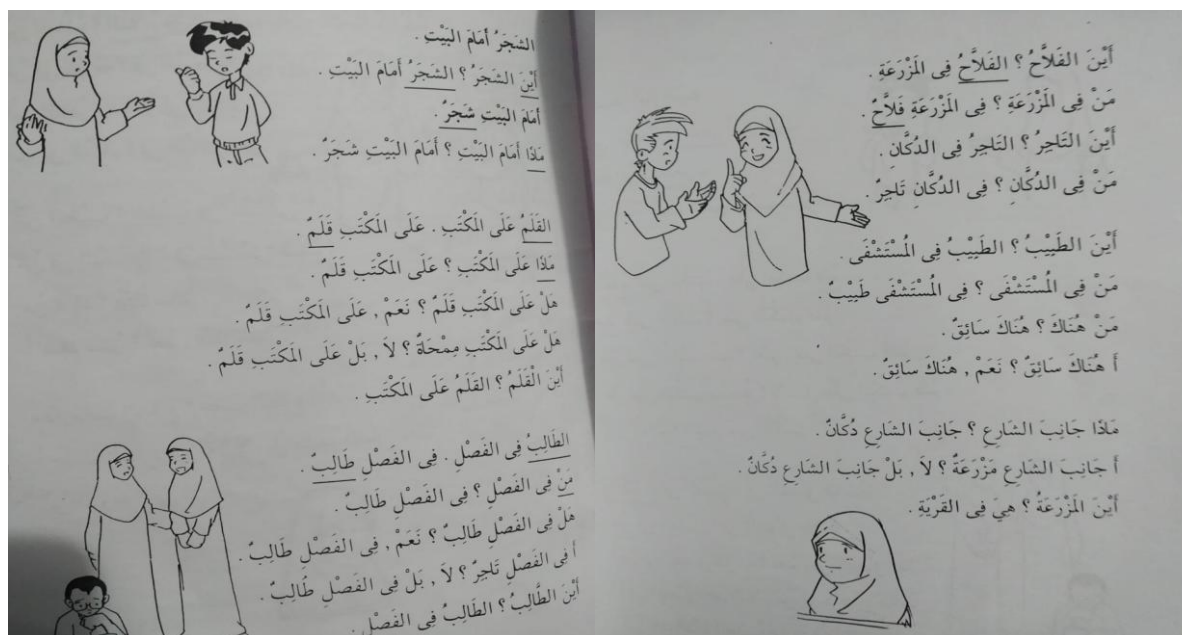 الشَجَرُ أَمَامَ البَيْتِ .
أَيْنَ الشَجَرُ ؟ الشَجَرُ أَمَامَ البَيْتِ .
أَمَامَ البَيْتِ شَجَرٌ .
مَاذَا أَمَامَ البَيْتِ ؟ أَمَامَ البَيْتِ شَجَرٌ .
القَلَمُ عَلَى المَكْتَبِ . عَلَى المَكْتَبِ قَلَمٌ .
مَاذَا عَلَى المَكْتَبِ ؟ عَلَى المَكْتَبِ قَلَمٌ .
هَلْ عَلَى المَكْتَبِ قَلَمٌ ؟ نَعَمْ , عَلَى المَكْتَبِ قَلَمٌ .
هَلْ عَلَى المَكْتَبِ مِمْحَاةٌ ؟ لاَ , بَلْ عَلَى المَكْتَبِ قَلَمٌ .
أَيْنَ الْقَلَمُ ؟ القَلَمُ عَلَى المَكْتَبِ .
الطَالِبُ فِى الفَصْلِ . فِى الفَصْلِ طَالِبٌ .
مَنْ فِى الفَصْلِ ؟ فِى الفَصْلِ طَالِبٌ .
هَلْ فِى الفَصْلِ طَالِبٌ ؟ نَعَمْ , فِى الفَصْلِ طَالِبٌ .
أَفِى الفَصْلِ تَاجِرٌ ؟ لاَ , بَلْ فِى الفَصْلِ طَالِبٌ .
أَيْنَ الطَّالِبُ ؟ الطَالِبُ فِى الفَصْلِ .
أَيْنَ الفَلاَّحُ ؟ الفَلاَّحُ فِى المَزْرَعَةِ .
مَنْ فِى المَزْرَعَةِ ؟ فِى المَزْرَعَةِ فَلاَّحٌ .
أَيْنَ التَاجِرُ ؟ التَاجِرُ فِى الدُكَّانِ .
مَنْ فِى الدُكَّانِ ؟ فِى الدُكَّانِ تَاجِرٌ .
أَيْنَ الطَبِيْبُ ؟ الطَبِيْبُ فِى المُسْتَشْفَى .
مَنْ فِى المُسْتَشْفَى ؟ فِى المُسْتَشْفَى طَبِيْبٌ .
مَنْ هُنَاكَ ؟ هُنَاكَ سَائِقٌ .
أَ هُنَاكَ سَائِقٌ ؟ نَعَمْ , هُنَاكَ سَائِقٌ .
مَاذَا جَانِبَ الشَارِعِ ؟ جَانِبَ الشَارِعِ دُكَّانٌ .
أَ جَانِبَ الشَارِعِ مَزْرَعَةٌ ؟ لاَ , بَلْ جَانِبَ الشَارِعِ دُكَّانٌ .
أَيْنَ المَزْرَعَةُ ؟ هِيَ فِى القَرْيَةِ .